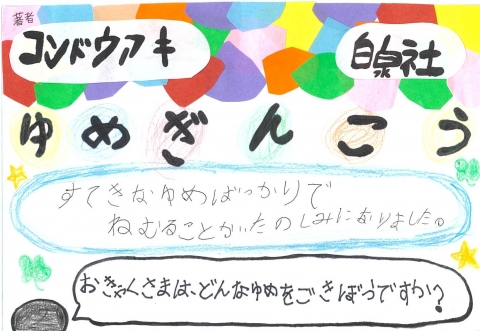 著者
コンドウアキ
白泉社
ゆめぎんこう
すてきなゆめばっかりで
ねむることがたのしみになりました。
おきゃくさまは、どんなゆめをごきぼうですか?